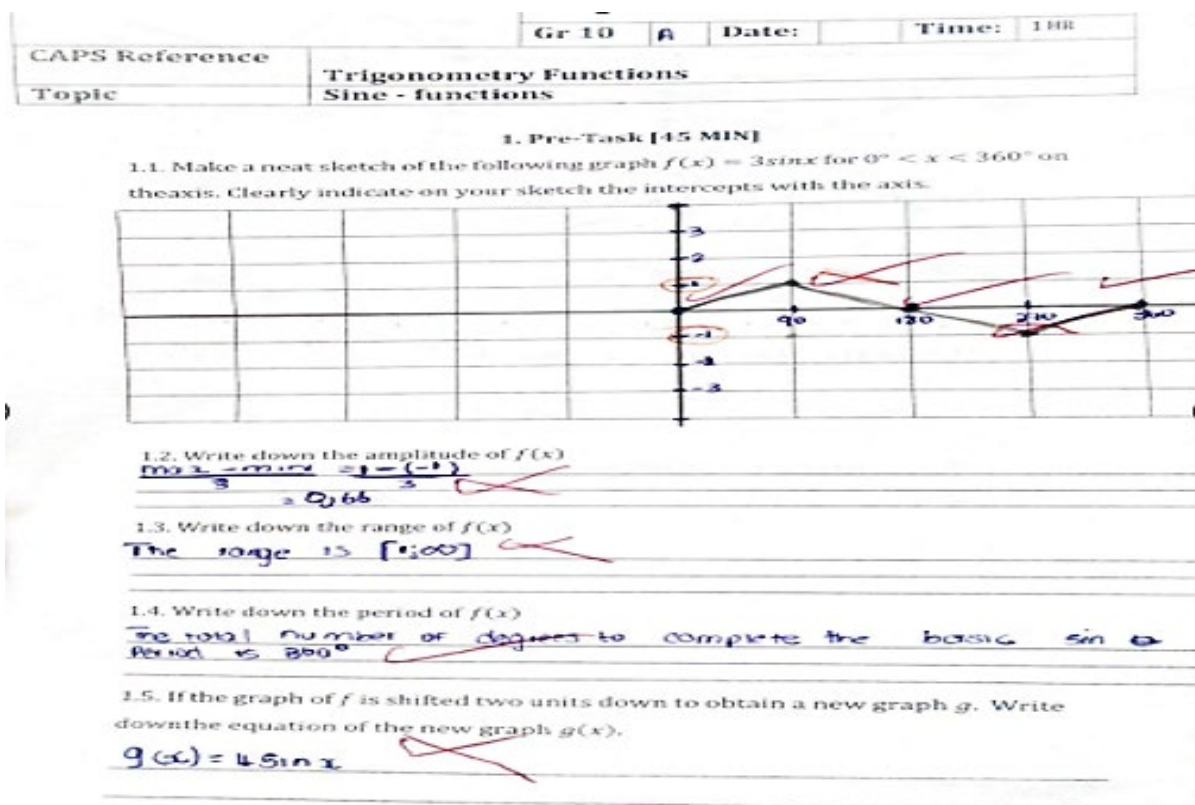 Gr 10 A Date: Time: 1 HR
CAPS Reference
Trigonometry Functions
Topic Sine - functions
1. Pre-Task [45 MIN]
1.1. Make a neat sketch of the following graph f(x) = 3sinx for 0° < x < 360° on
theaxis. Clearly indicate on your sketch the intercepts with the axis.
3
2
1
90 180 270 360
-1
-2
-3
1.2. Write down the amplitude of f(x)
max - mini = 1-(-1)
3 3
= 0,66
1.3. Write down the range of f(x)
The range is [1;∞]
1.4. Write down the period of f(x)
The total number of degrees to complete the basic sin
Period is 360°
1.5. If the graph of f is shifted two units down to obtain a new graph g. Write
downthe equation of the new graph g(x).
g(x) = 4 Sin x